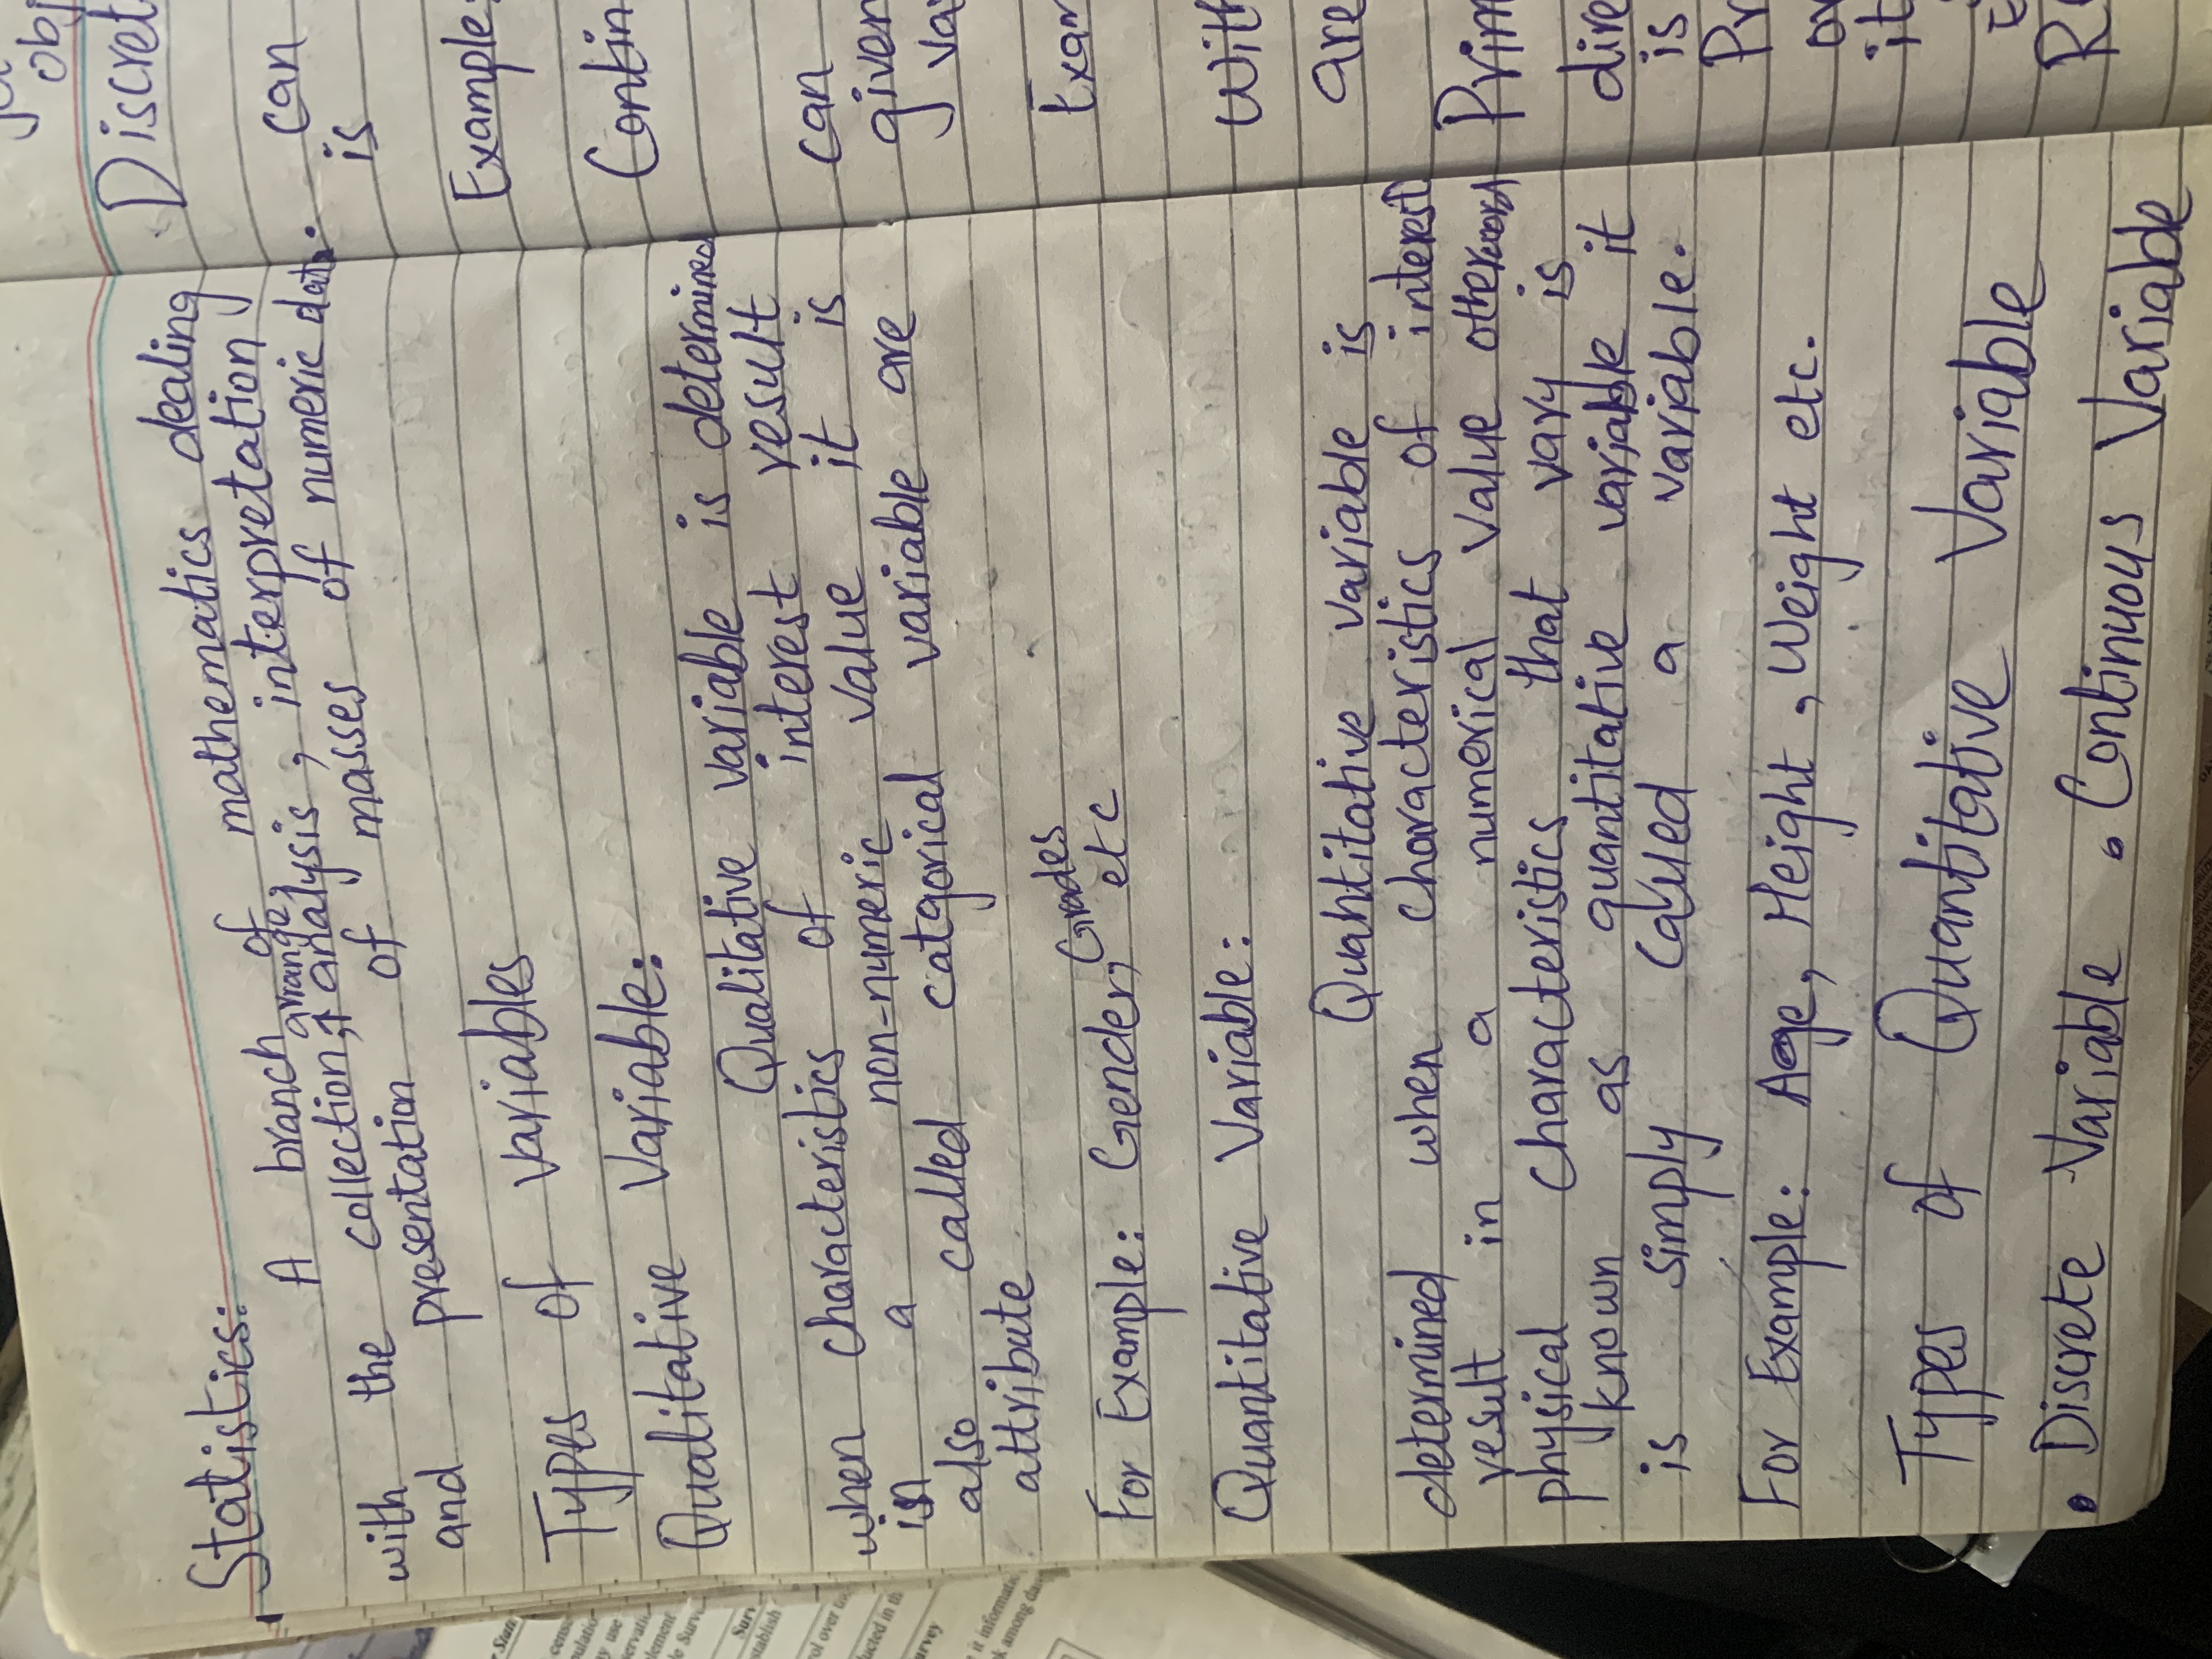 Statistics:
A branch of mathematics dealing
with the collection, arrange, analysis, interpretation
and presentation of masses of numeric data.
Types of variables
Qualitative Variable:
Qualitative variable is determined
when characteristics of interest result
in a non-numeric value it is
also called catgorical variable are
attribute
For Example: Gender, Grades etc
Quantitative Variable:
Quantitative variable is
determined when characteristics of interest
result in a numerical value otherword
physical characteristics that vary is
known as quantitative variable it
is simply called a variable.
For Example: Age, Height, Weight etc.
Types of Quantitative Variable
• Discrete Variable • Continuous Variable
obj
Discret
can
is
Example:
Contin
can
given
va
Exam
With
are
Prim
dire
is
Pr
it